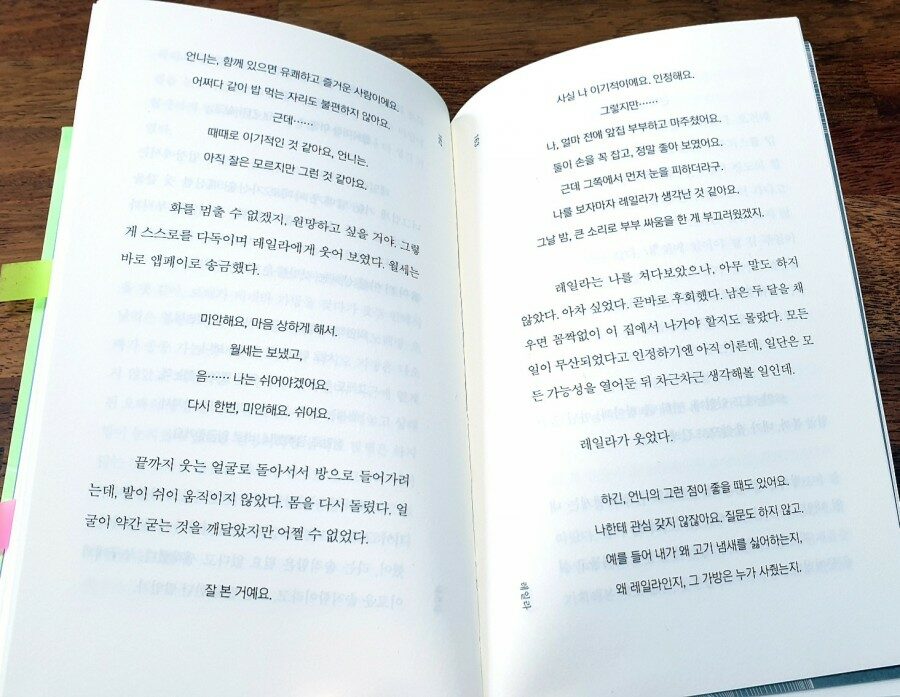 언니는, 함께 있으면 유쾌하고 즐거운 사람이에요.
어쩌다 같이 밥 먹는 자리도 불편하지 않아요.
근데……
때때로 이기적인 것 같아요, 언니는.
아직 잘은 모르지만 그런 것 같아요.
화를 멈출 수 없겠지, 원망하고 싶을 거야. 그렇
게 스스로를 다독이며 레일라에게 웃어 보였다. 월세는
바로 앱페이로 송금했다.
미안해요, 마음 상하게 해서.
월세는 보냈고,
음…… 나는 쉬어야겠어요.
다시 한번, 미안해요. 쉬어요.
끝까지 웃는 얼굴로 돌아서서 방으로 들어가려
는데, 발이 쉬이 움직이지 않았다. 몸을 다시 돌렸다. 얼
굴이 약간 굳는 것을 깨달았지만 어쩔 수 없었다.
잘 본 거예요.
사실 나 이기적이에요. 인정해요.
그렇지만……
나, 얼마 전에 앞집 부부하고 마주쳤어요.
둘이 손을 꼭 잡고, 정말 좋아 보였어요.
근데 그쪽에서 먼저 눈을 피하더라구.
나를 보자마자 레일라가 생각난 것 같아요.
그날 밤, 큰 소리로 부부 싸움을 한 게 부끄러웠겠지.
레일라는 나를 쳐다보았으나, 아무 말도 하지
않았다. 아차 싶었다. 곧바로 후회했다. 남은 두 달을 채
우면 꼼짝없이 이 집에서 나가야 할지도 몰랐다. 모든
일이 무산되었다고 인정하기엔 아직 이른데, 일단은 모
든 가능성을 열어둔 뒤 차근차근 생각해볼 일인데.
레일라가 웃었다.
하긴, 언니의 그런 점이 좋을 때도 있어요.
나한테 관심 갖지 않잖아요. 질문도 하지 않고.
예를 들어 내가 왜 고기 냄새를 싫어하는지,
왜 레일라인지, 그 가방은 누가 사줬는지,
레일라